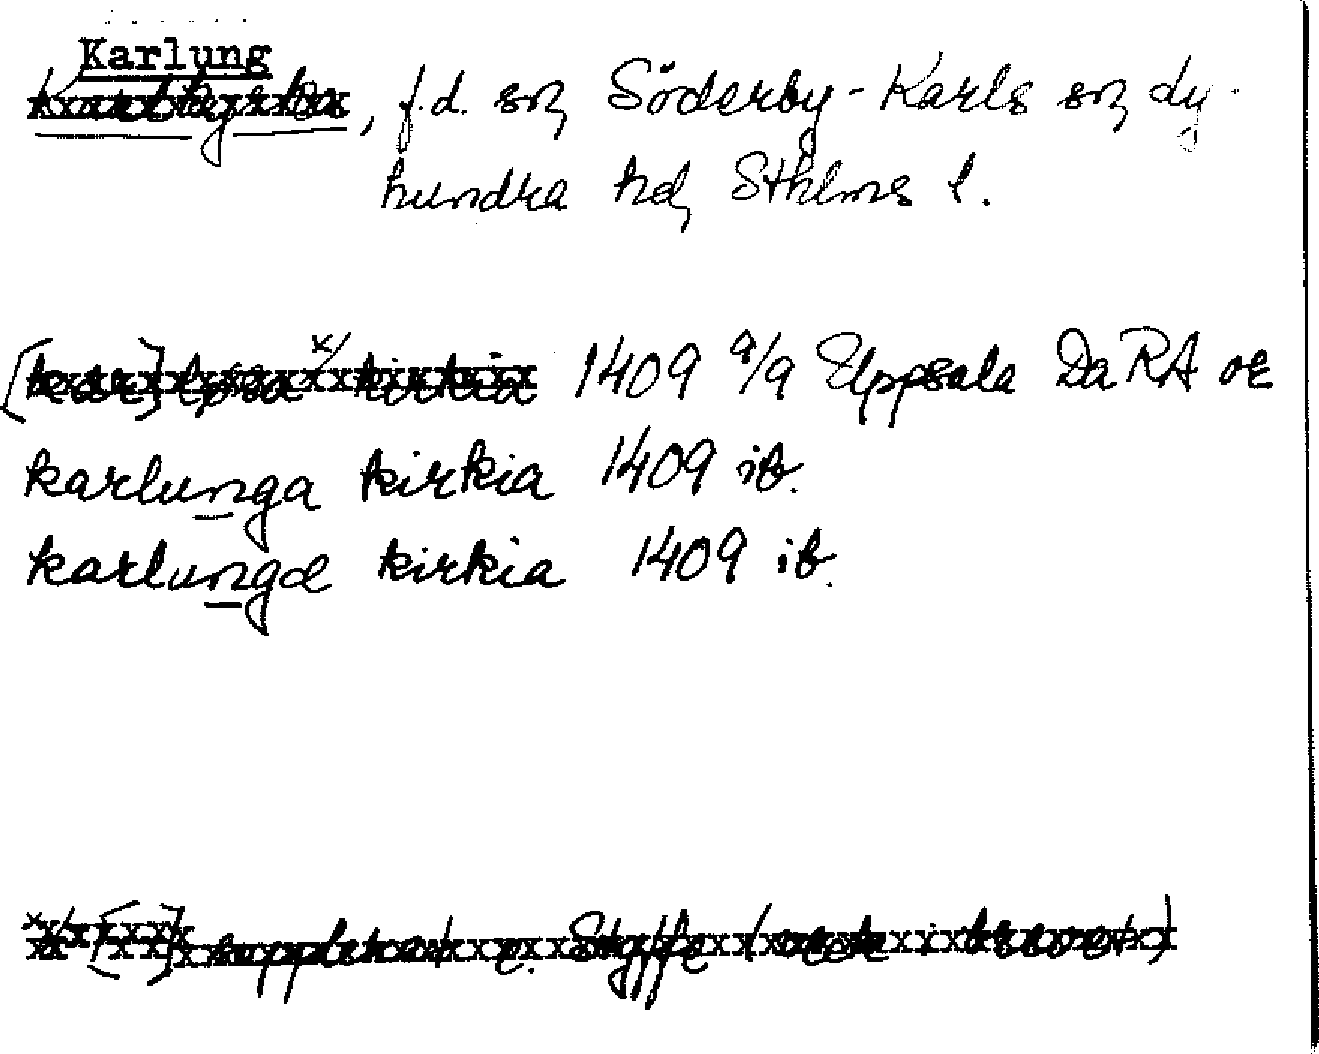 Karlung
, f.d. sn, Söderby-Karls sn, dy-
hundra hd, Sthlms l.
1409 9/9 Uppsala Da RA or
karlunga kirkia 1409 ib.
karlungæ kirkia 1409 ib.